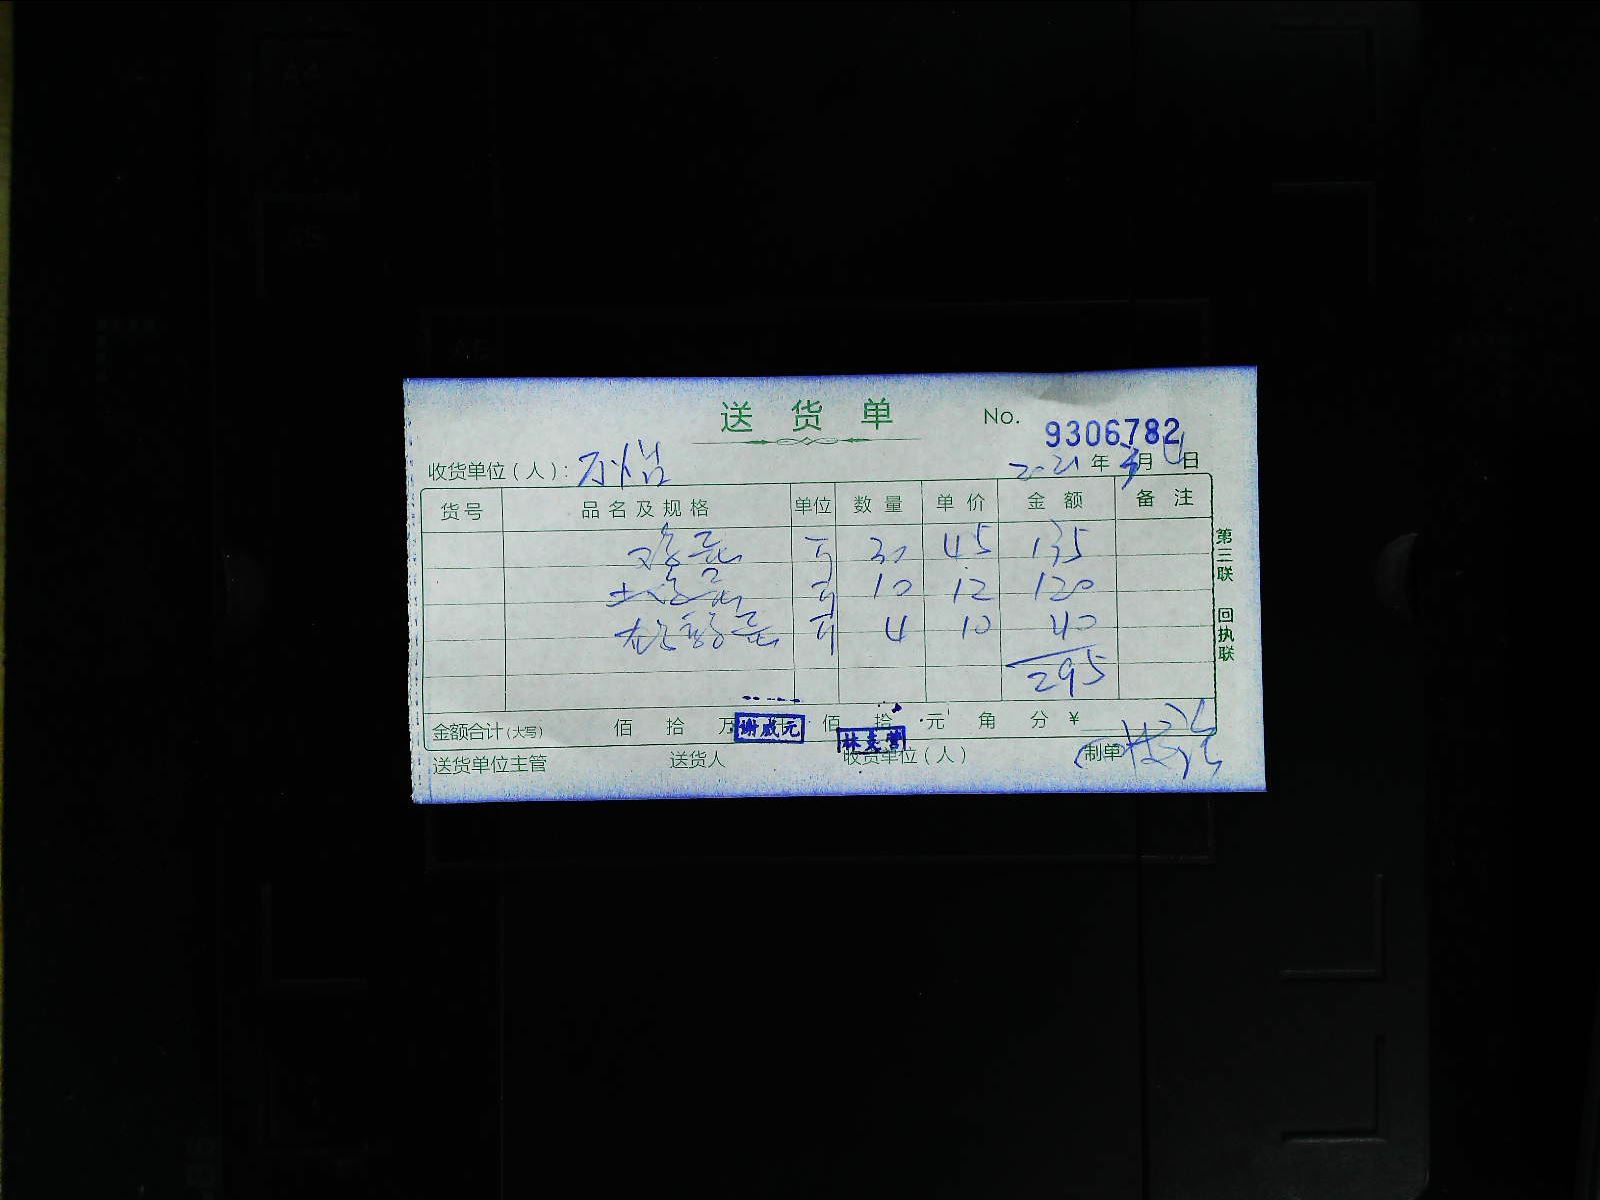 送货单
No. 9306782
收货单位（人）：
2021年3月4日
货号 品名及规格 单位 数量 单价 金额 备注
鸡蛋 斤 30 45 135
土鸡蛋 斤 10 12 120
斤 4 10 40
295
金额合计(大写) 佰 拾 万 仟 佰 拾 元 角 分 ¥
谢成元
送货单位主管 送货人 收货单位（人） 制单
第三联 回执联